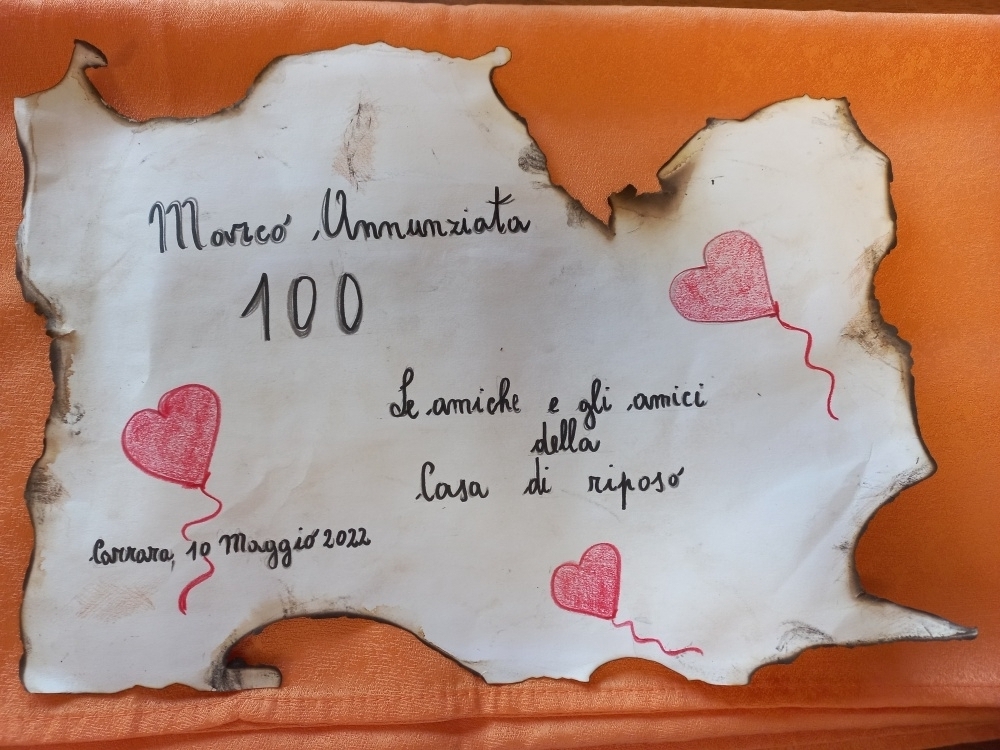 Marco Annunziata
100
Le amiche e gli amici
della
Casa di riposo
Carrara, 10 Maggio 2022